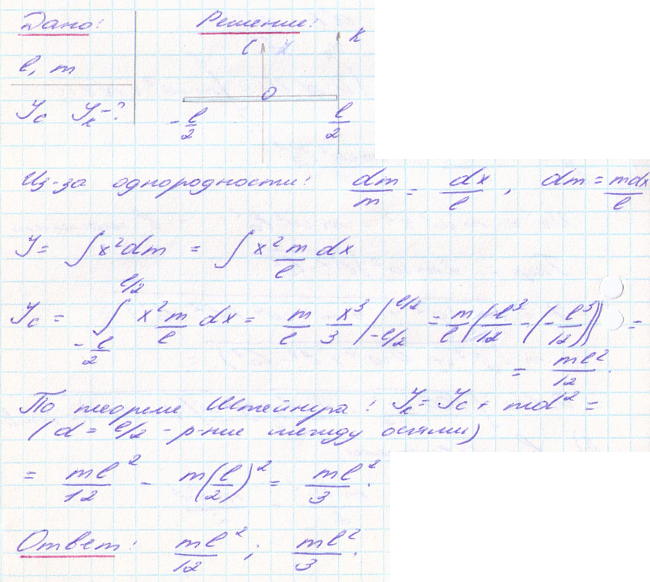 Дано: Решение:
C x K
l, m
O
Jc Jk -?
-l/2 l/2
Из-за однородности: dm/m = dx/l, dm = mdx/l
J = ∫x²dm = ∫x² m/l dx
Jc = ∫_{-l/2}^{l/2} x² m/l dx = m/l x³/3 |_{-l/2}^{l/2} = m/l (l³/12 - (-l³/12)) =
= ml²/12.
По теореме Штейнура: Jk = Jc + md² =
(d = l/2 - р-ние между осями)
= ml²/12 - m(l/2)² = ml²/3.
Ответ: ml²/12; ml²/3.